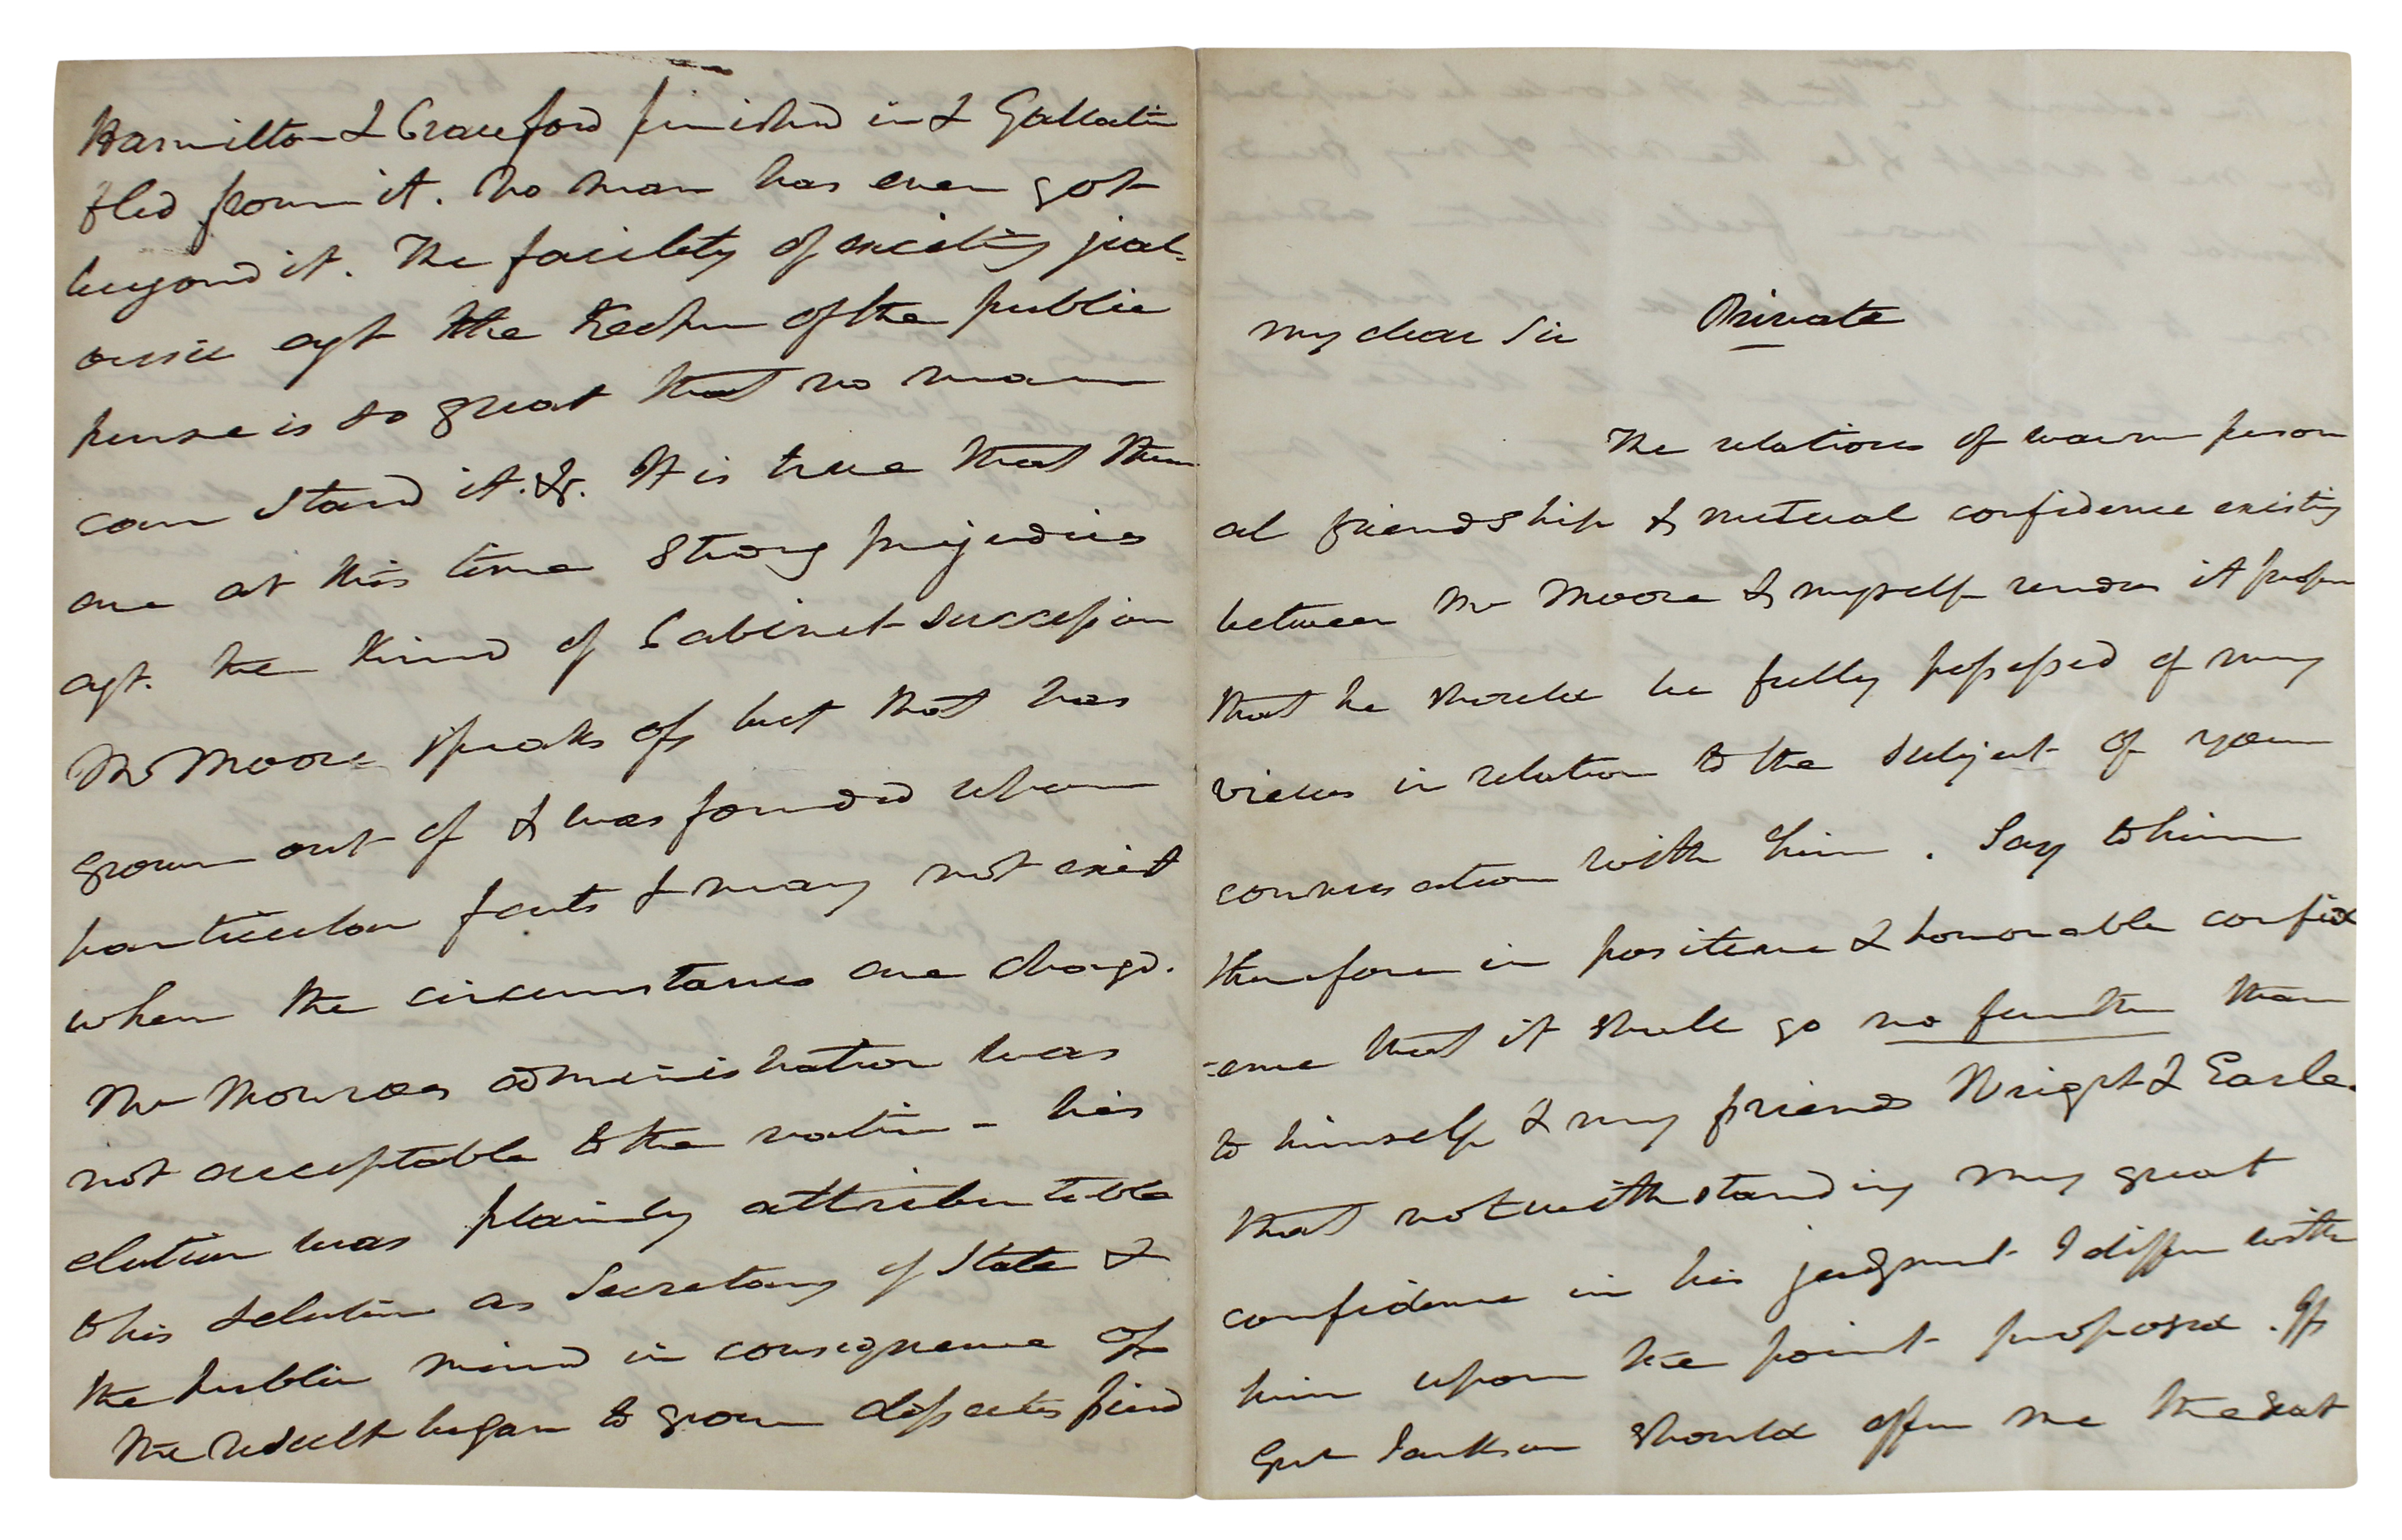 Hamilton & Crawford finished in & Gallatin
fled from it. No man has ever got
beyond it. The facility of exciting jeal-
ousie agt the Keeper of the public
purse is so great that no man
can stand it. &. It is true that there
are at this time strong prejudices
agt. the kind of Cabinet succession
Mr Moore speaks of, but that has
grown out of & was founded upon
particular facts & may not exist
when the circumstances are changd.
Mr Monroes administration was
not acceptable to the nation - his
election was plainly attributable
to his selection as Secretary of State &
the public mind in consequence of
the result began to grow dissatisfied
Private
My dear Sir
The relations of warm person
al friendship & mutual confidence existing
between Mr Moore & myself renders it proper
that he should be fully possessed of my
views in relation to the subject of your
conversation with him. Say to him
therefore in positive & honorable confid
-ence that it shall go no further than
to himself & my friends Wright & Earle.
that notwithstanding my great
confidence in his judgment I differ with
him upon the point proposed. If
Genl Jackson should offer me the seat